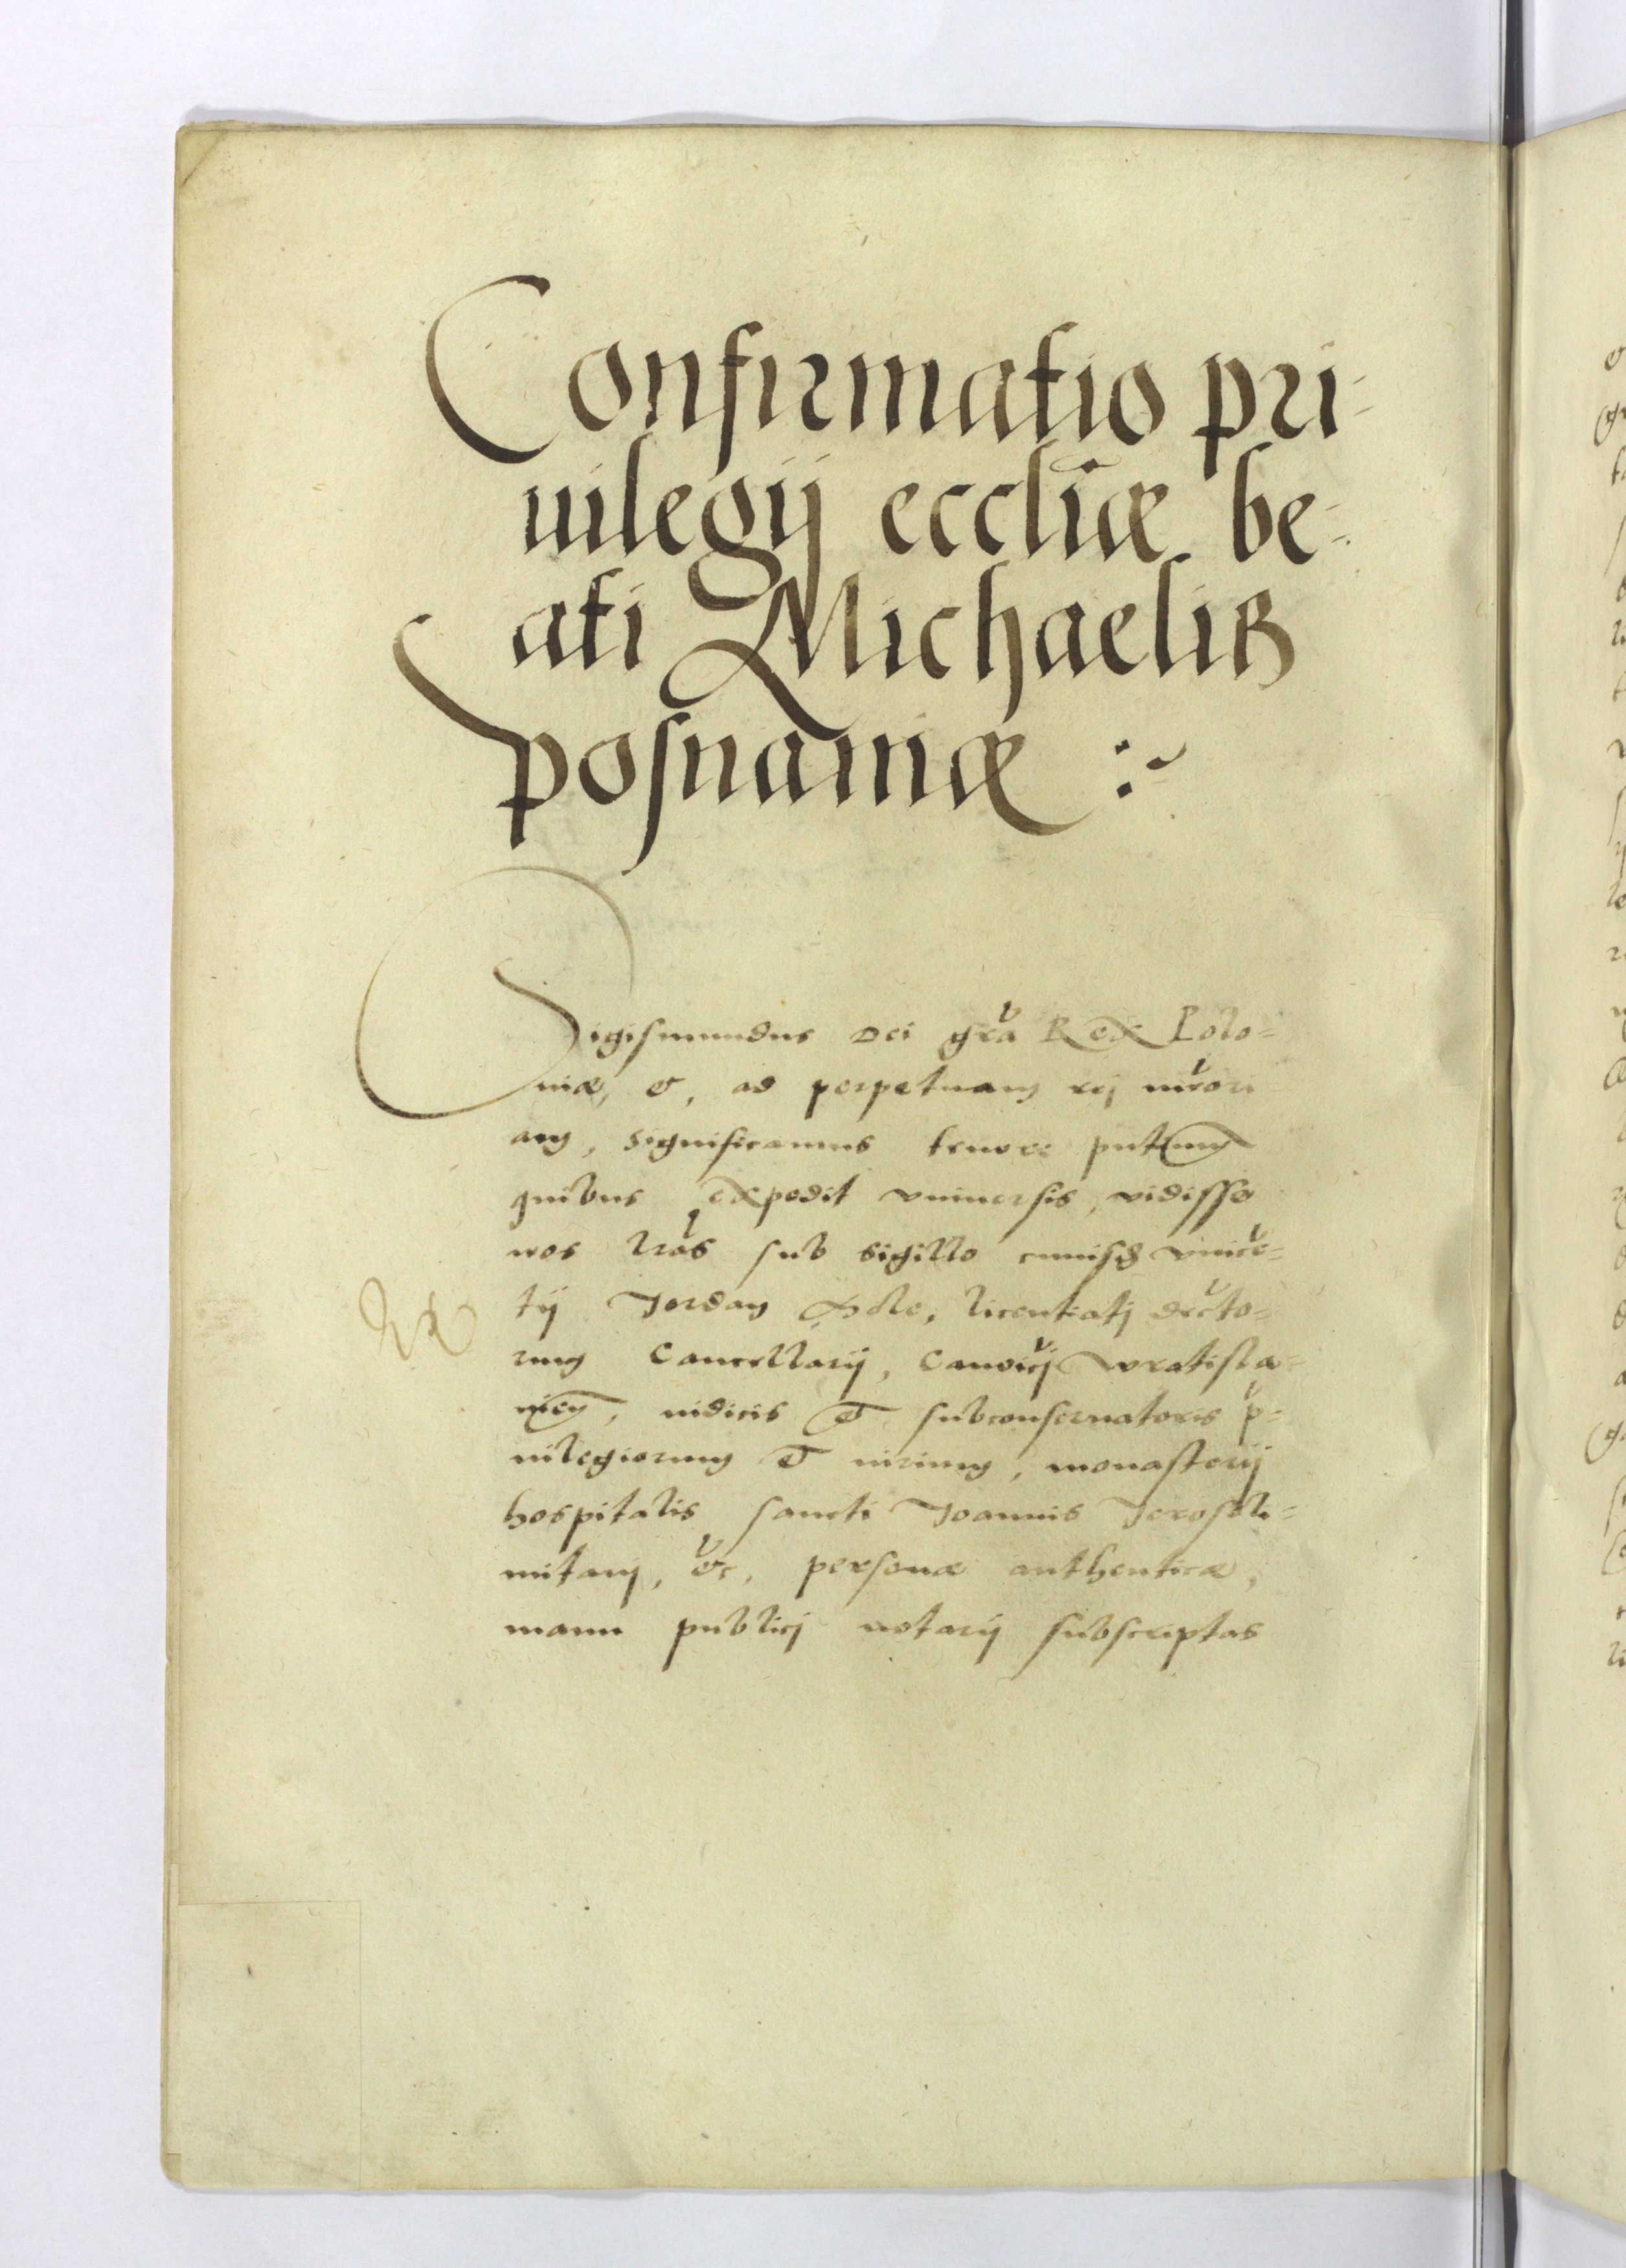 Confirmatio pri-
uilegij eccliæ be-
ati Michaelis
posnaniæ :~
Sigismundus Dei gra Rex Polo=
niæ, &, ad perpetuam rej memori
am, significamus tenore pntium
quibus expedit vniuersis, vidisse
nos lras sub sigillo cuiusd vince=
tij Jordan, licentiatj decreto=
rum Cancellarij, Canonicj wratisla=
uien, iudicis et subconseruatoris p=
uilegiorum et iurium, monasterij
hospitalis sancti Joannis Jerosoli=
mitani, &c, personæ authenticæ,
manu publicj notarij subscriptas